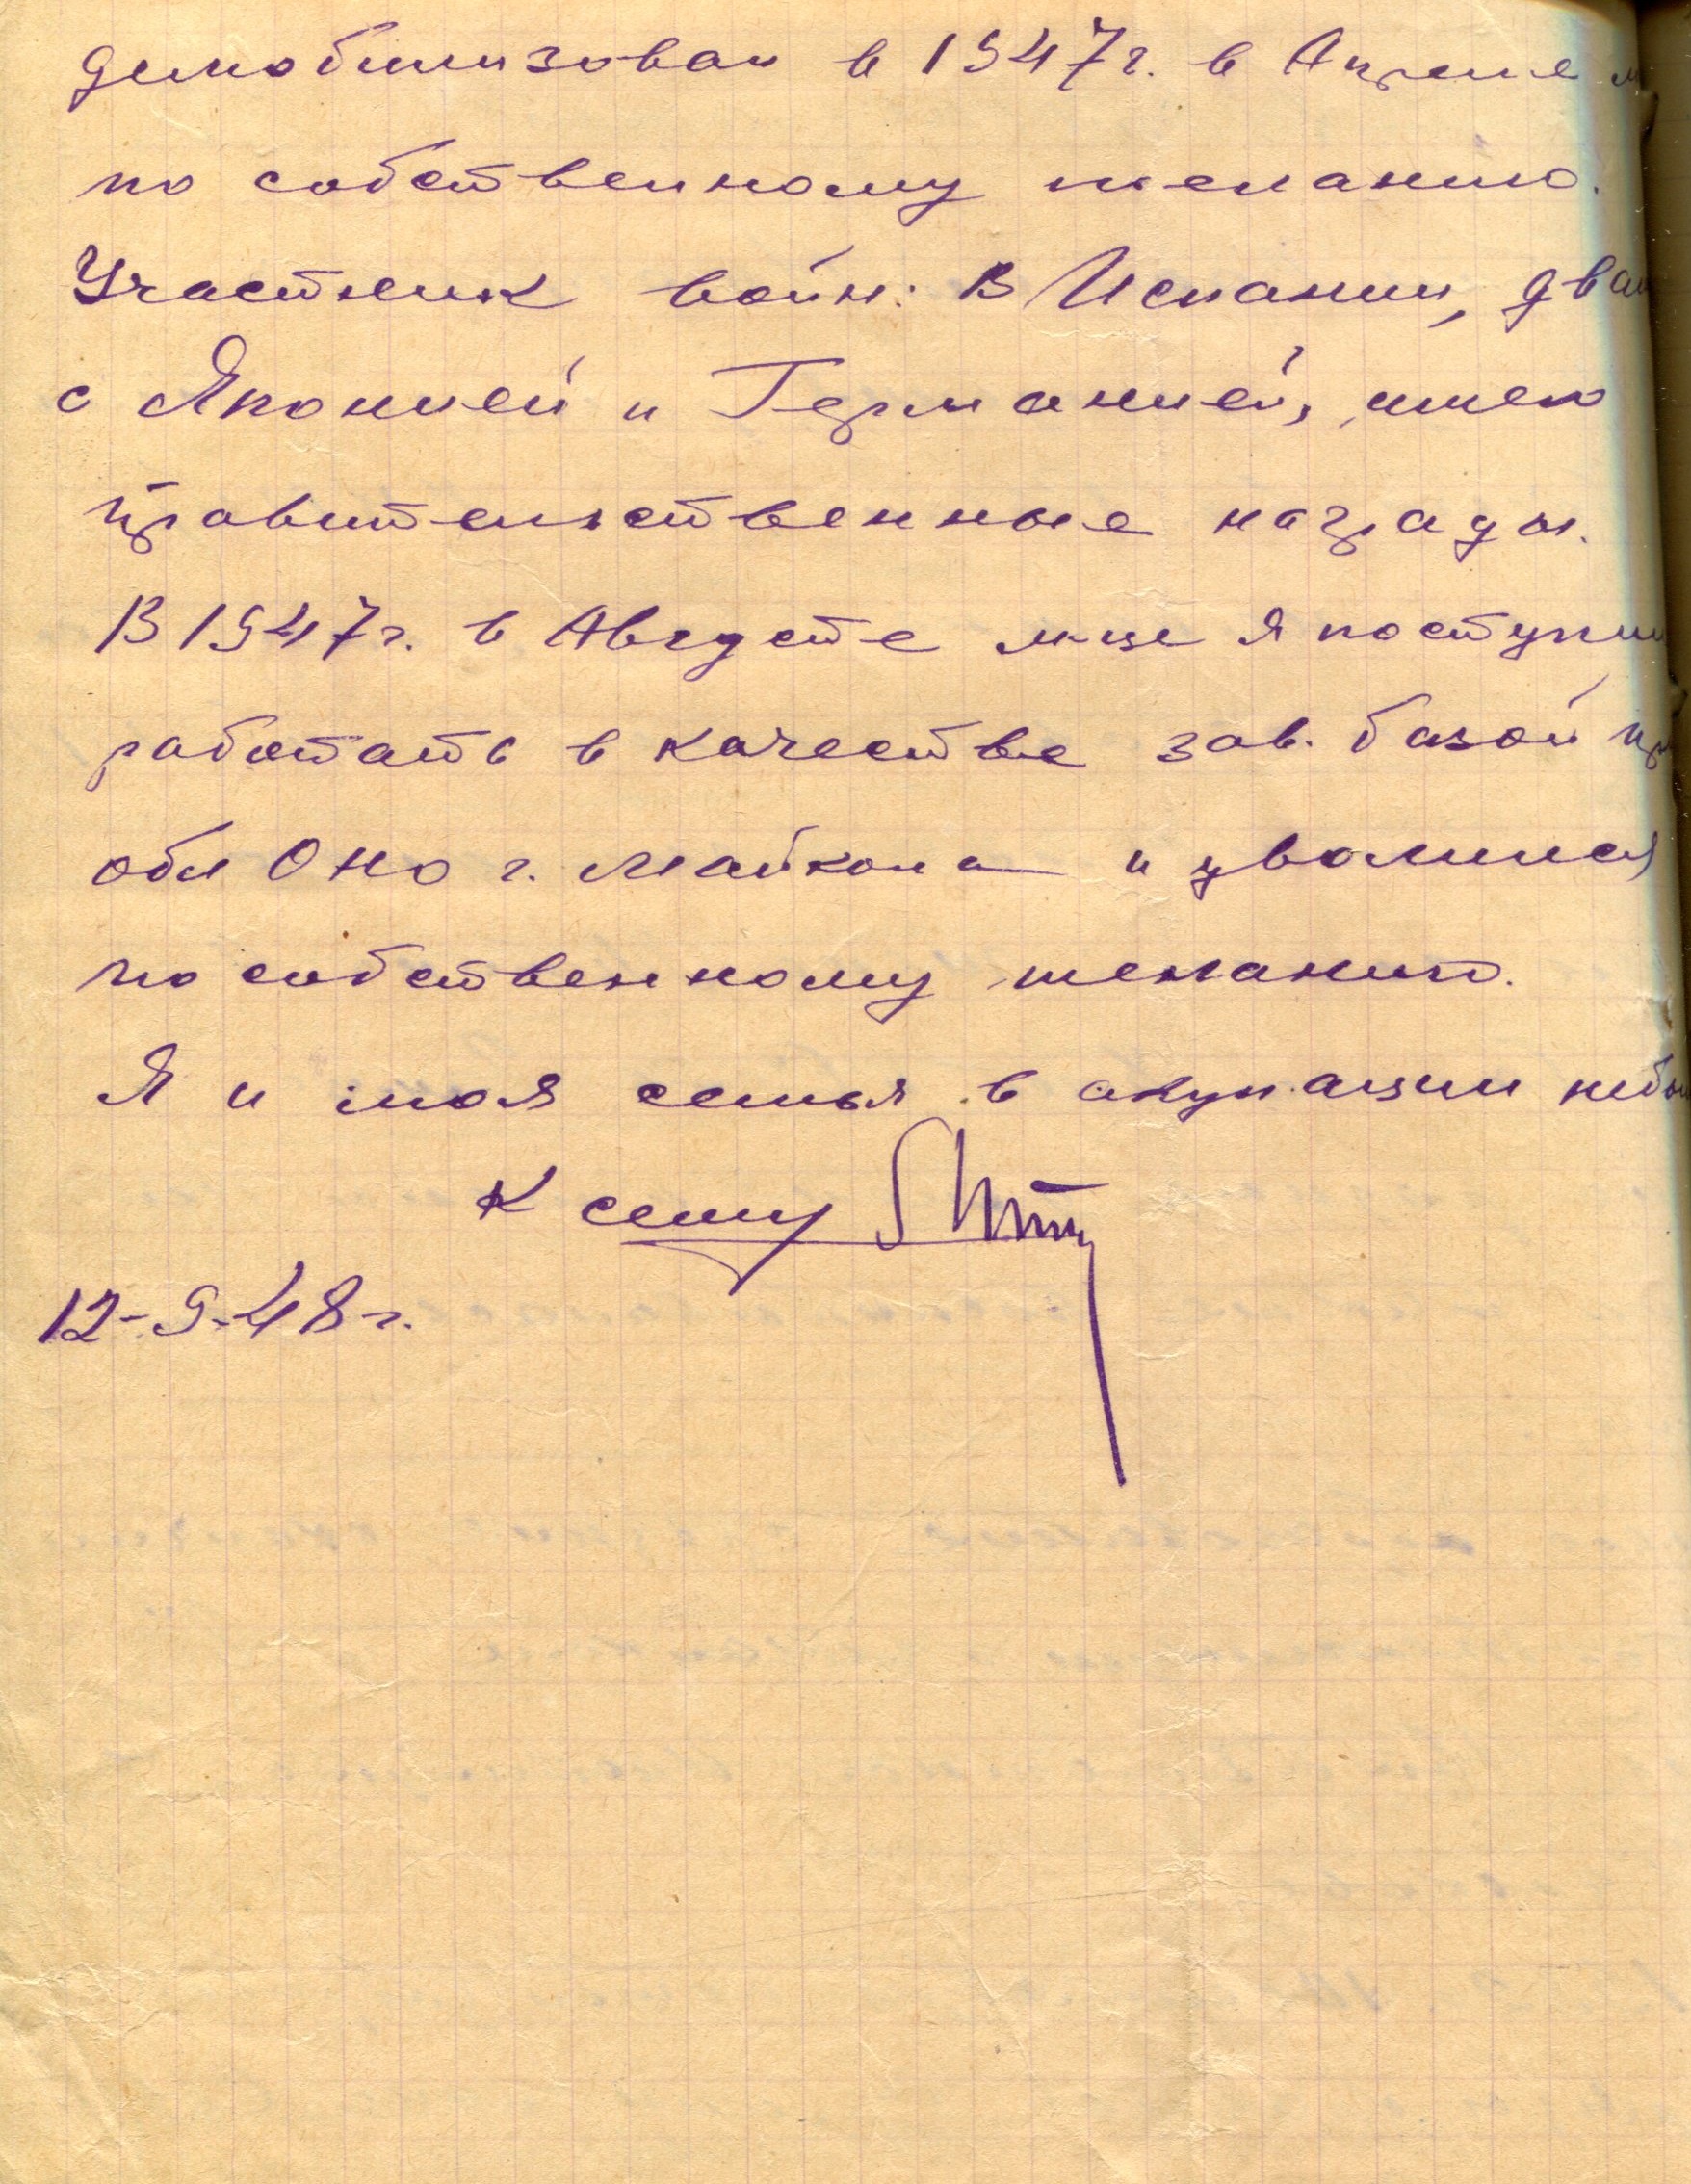 демобилизован в 1947г. в Апреле м
по собственному желанию.
Участник войн: в Испании, два
с Японией и Германией, имею
правительственные награды.
В 1947г. в Августе м-це я поступил
работать в качестве зав. базой пр
обл Оно г. Майкопа и уволился
по собственному желанию.
Я и моя семья в акупации небы
К сему
12-9-48г.